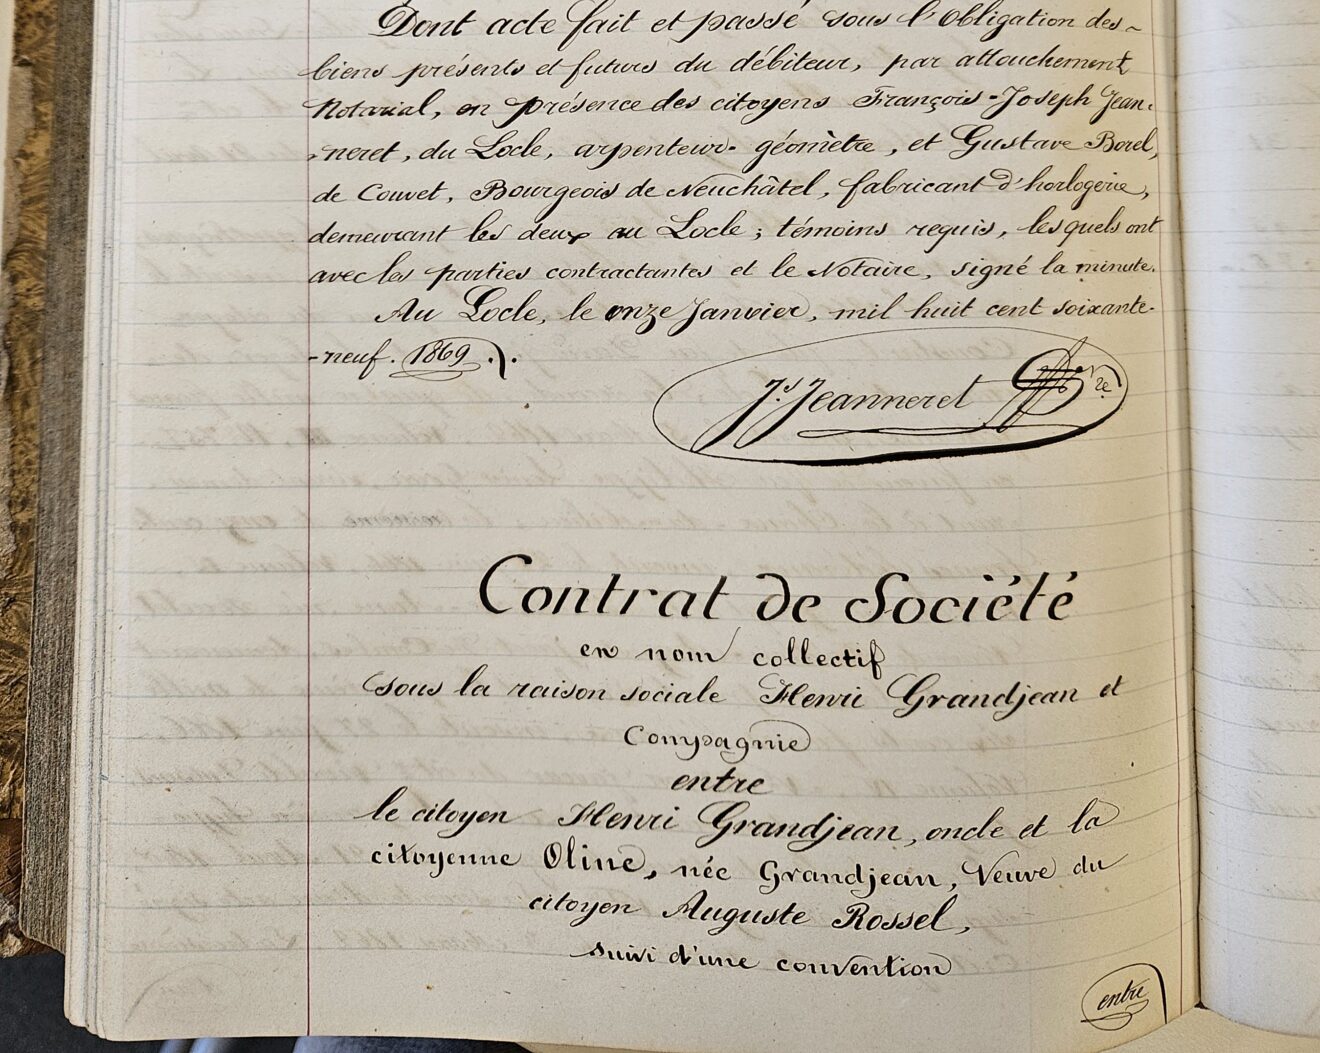 Dont acte fait et passé sous l'Obligation des~
biens présents et futurs du débiteur, par attouchement
Notarial, en présence des citoyens François-Joseph Jean-
-neret, du Locle, arpenteur-géomètre, et Gustave Borel,
de Couvet, Bourgeois de Neuchâtel, fabricant d'horlogerie,
demeurant les deux au Locle; témoins requis, lesquels ont
avec les parties contractantes et le Notaire, signé la minute.
Au Locle, le onze Janvier, mil huit cent soixante-
-neuf. 1869.
Js Jeanneret Nre
Contrat de Société
en nom collectif
sous la raison sociale Henri Grandjean et
Compagnie
entre
le citoyen Henri Grandjean, oncle et la
citoyenne Oline, née Grandjean, Veuve du
citoyen Auguste Rossel,
suivi d'une convention
entre